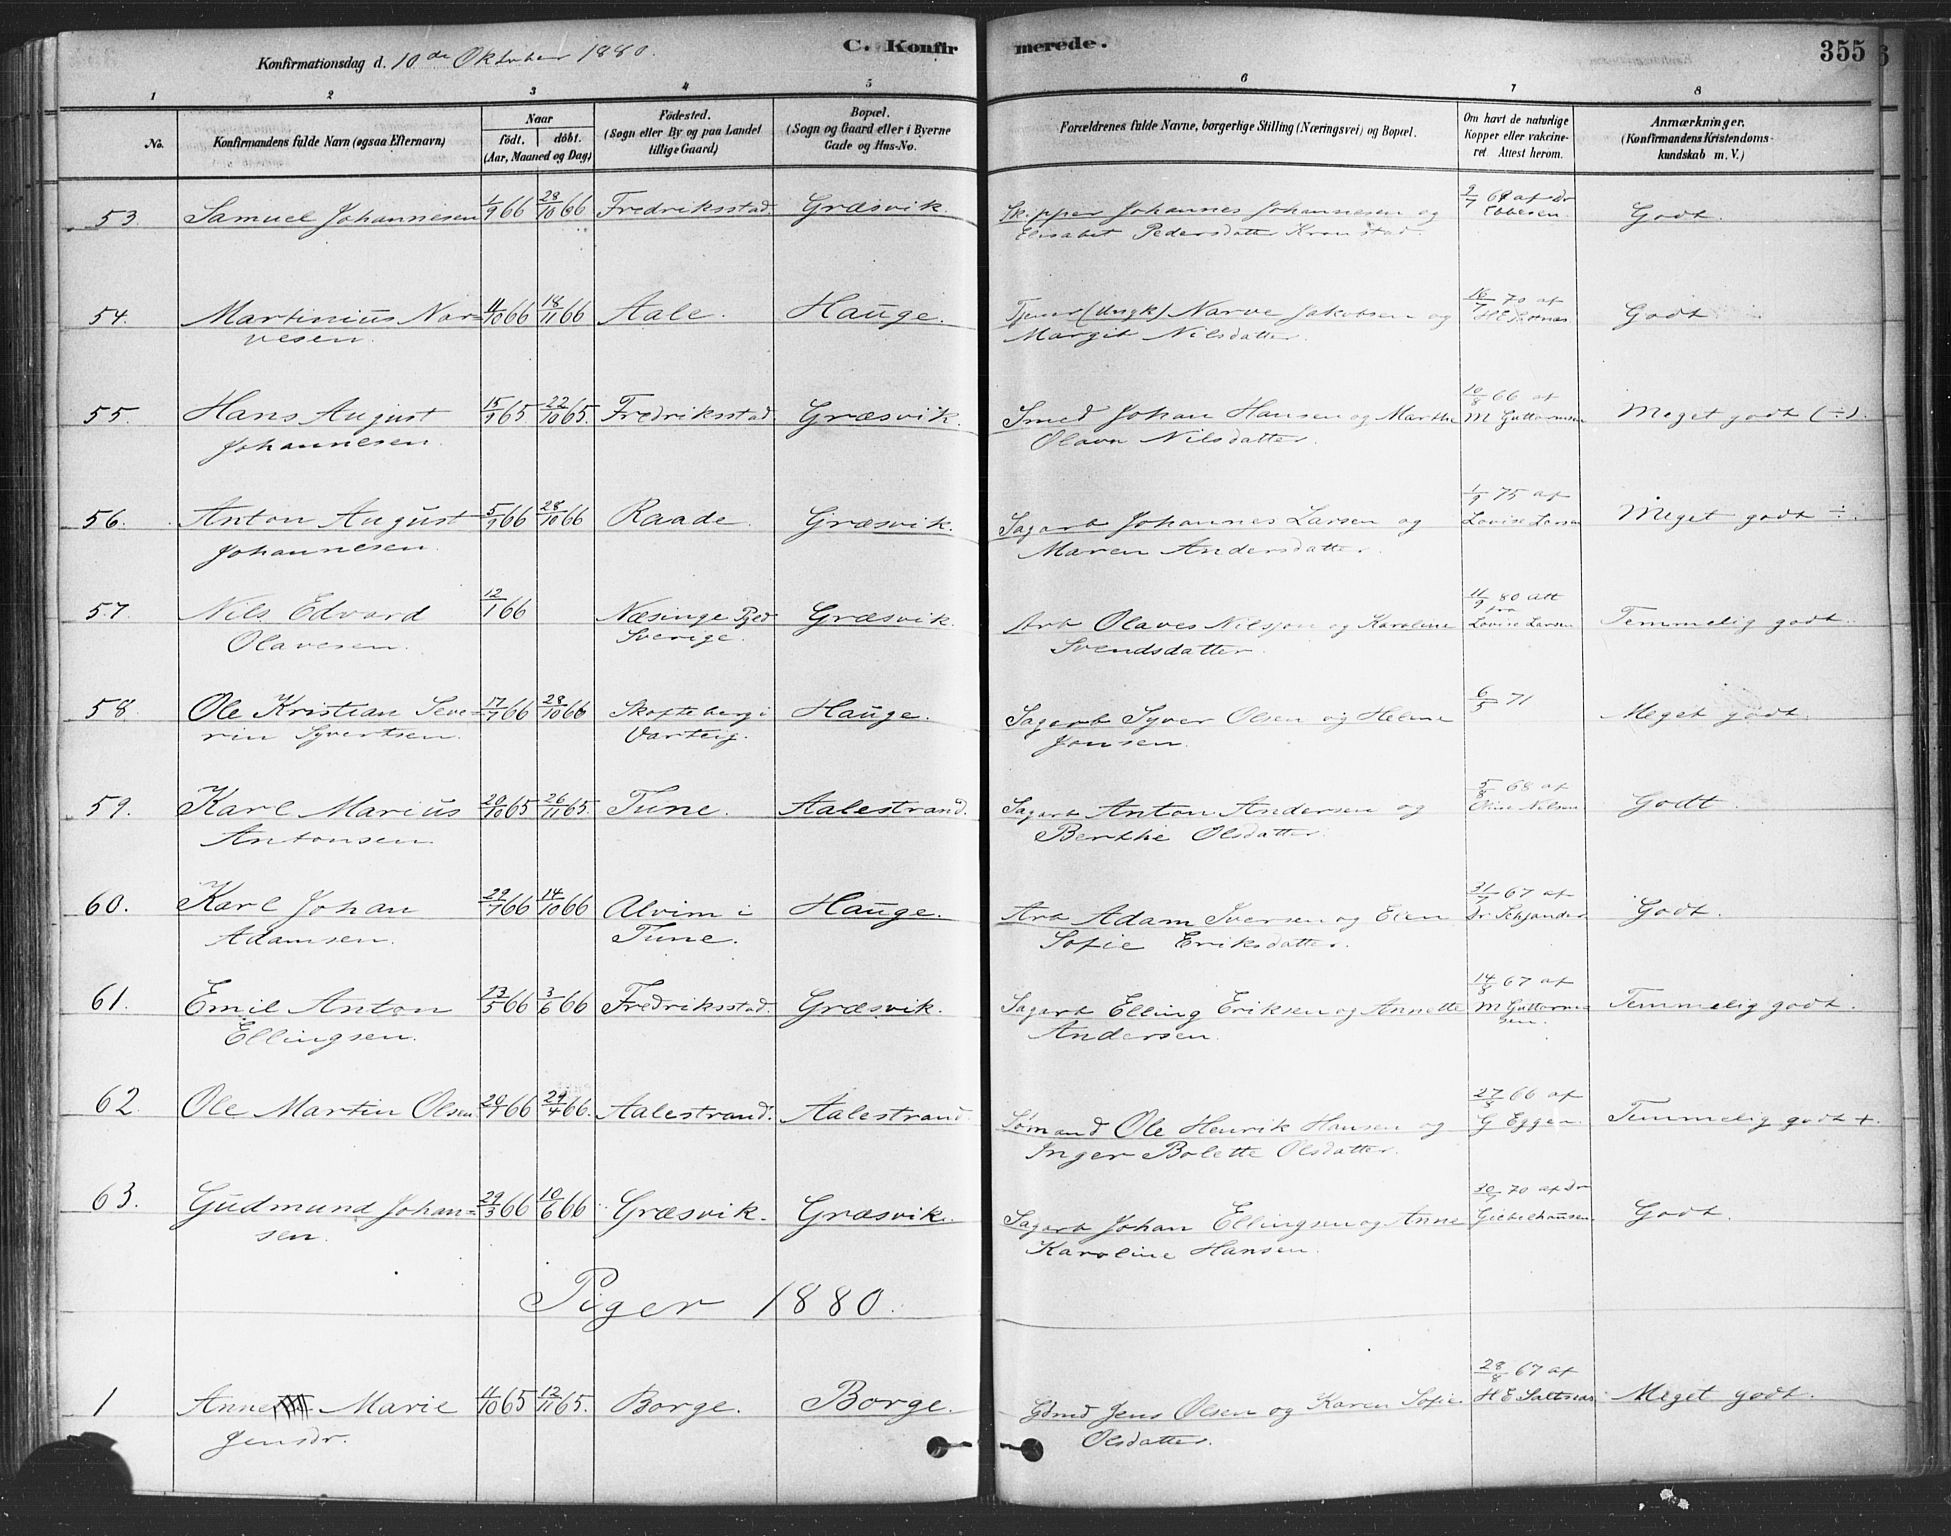 Konfirmationsdag d. 10de Oktober 1880.
C. Konfir merede.
355
1 2 3 4 5 6 7 8
No.
Konfirmandens fulde Navn (ogsaa Efternavn)
Naar
født. døbt.
(Aar, Maaned og Dag)
Fødested.
(Sogn eller By og paa Landet
tillige Gaard)
Bopæl.
(Sogn og Gaard eller i Byerne
Gade og Hus-No.
Forældrenes fulde Navne, borgerlige Stilling (Næringsvei) og Bopæl.
Om havt de naturlige
Kopper eller vakcine-
ret Attest herom.
Anmærkninger,
(Konfirmandens Kristendoms-
kundskab m. V.)
53. Samuel Johannesen 1/9 66 28/10 66 Fredriksstad Græsvik. Skipper Johannes Johannesen og 2/7 67 af Dr Godt.
Elisabet Pedersdatter Kronstad. Ebbesen.
54. Martinius Nar= 11/10 66 18/11 66 Aale. Hauge. Tjener (Ungk) Narve Jakobsen og 16/7 70 af Godt
vesen. Margit Nilsdatter.
55. Hans August 15/9 65 22/10 65. Fredriksstad Græsvik. Smed Johan Hansen og Marthe 10/8 66 af Meget godt (÷).
Johannesen. Olava Nilsdatter. M Guttormsen
56. Anton August 5/9 66 28/10 66 Raade. Græsvik. Sagarb Johannes Larsen og 1/9 75 af Meget godt ÷.
Johannesen. Maren Andersdatter. Lovise Larsen
57. Nils Edvard 12/1 66 Næsinge Pgd Græsvik. Arb Olaves Nilsson og Karoline 11/9 80 Att Temmelig godt.
Olavesen. Sverige. Svendsdatter. fra Lovise Larsen
58. Ole Kristian Seve= 17/7 66 28/10 66 Skofteberg i Hauge. Sagarb Syver Olsen og Helene 6/5 71 Meget godt.
rin Syvertsen. Varteig. Jonsen.
59. Karl Marius 20/10 65 26/11 65. Tune. Aalestrand. Sagarb Anton Andersen og 5/8 68 af Godt.
Antonsen. Berthe Olsdatter. Nilsen
60. Karl Johan 29/7 66 14/10 66 Alvim i Hauge. Arb Adam Iversen og Elen 31/7 67 af Godt.
Adamsen. Tune. Sofie Eriksdatter. Dr.
61. Emil Anton 13/5 66 3/6 66 Fredriksstad. Græsvik. Sagarb Elling Eriksen og Annette 14/8 67 af Temmelig godt.
Ellingsen. Andersen. M Guttorm
sen.
62. Ole Martin Olsen 20/1 66 29/4 66. Aalestrand. Aalestrand. Sømand Ole Henrik Hansen og 27/8 66 af Temmelig godt +.
Inger Bolette Olsdatter. G Eggen.
63. Gudmund Johan= 29/3 66 10/6 66 Græsvik. Græsvik. Sagarb Johan Ellingsen og Anne 70 af Dr Godt.
sen. Karoline Hansen. Giebelhausen
Piger 1880.
1 Anne Marie 11/10 65 12/11 65. Borge. Borge. Gbmd Jens Olsen og Karen Sofie 28/8 67 af Meget godt.
Jensdr. Olsdatter. H E Saltnæs